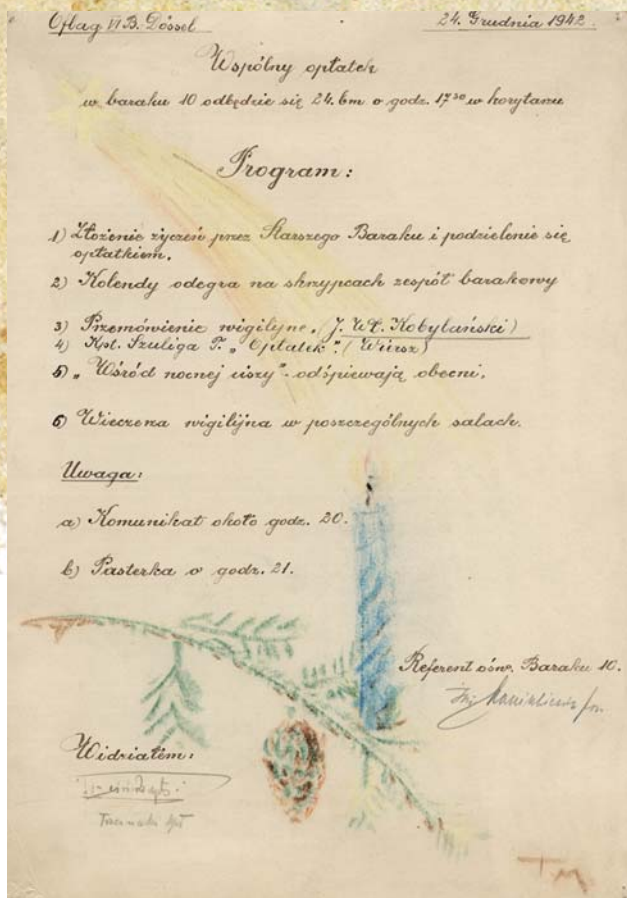 Oflag VI B. Dössel 24. Grudnia 1942.
Wspólny opłatek
w baraku 10 odbędzie się 24. bm o godz. 17³⁰ w korytarzu
Program:
1) Złożenie życzeń przez Starszego Baraku i podzielenie się
opłatkiem.
2) Kolendy odegra na skrzypcach zespół barakowy
3) Przemówienie wigilijne. (J. Wł. Kobylański)
4) Kpt. Szuliga T. „Opłatek". (Wiersz)
5) „Wśród nocnej ciszy"- odśpiewają obecni.
6) Wieczerza wigilijna w poszczególnych salach.
Uwaga:
a) Komunikat około godz. 20.
b) Pasterka o godz. 21.
Referent ośw. Baraku 10.
Widziałem:
T.M